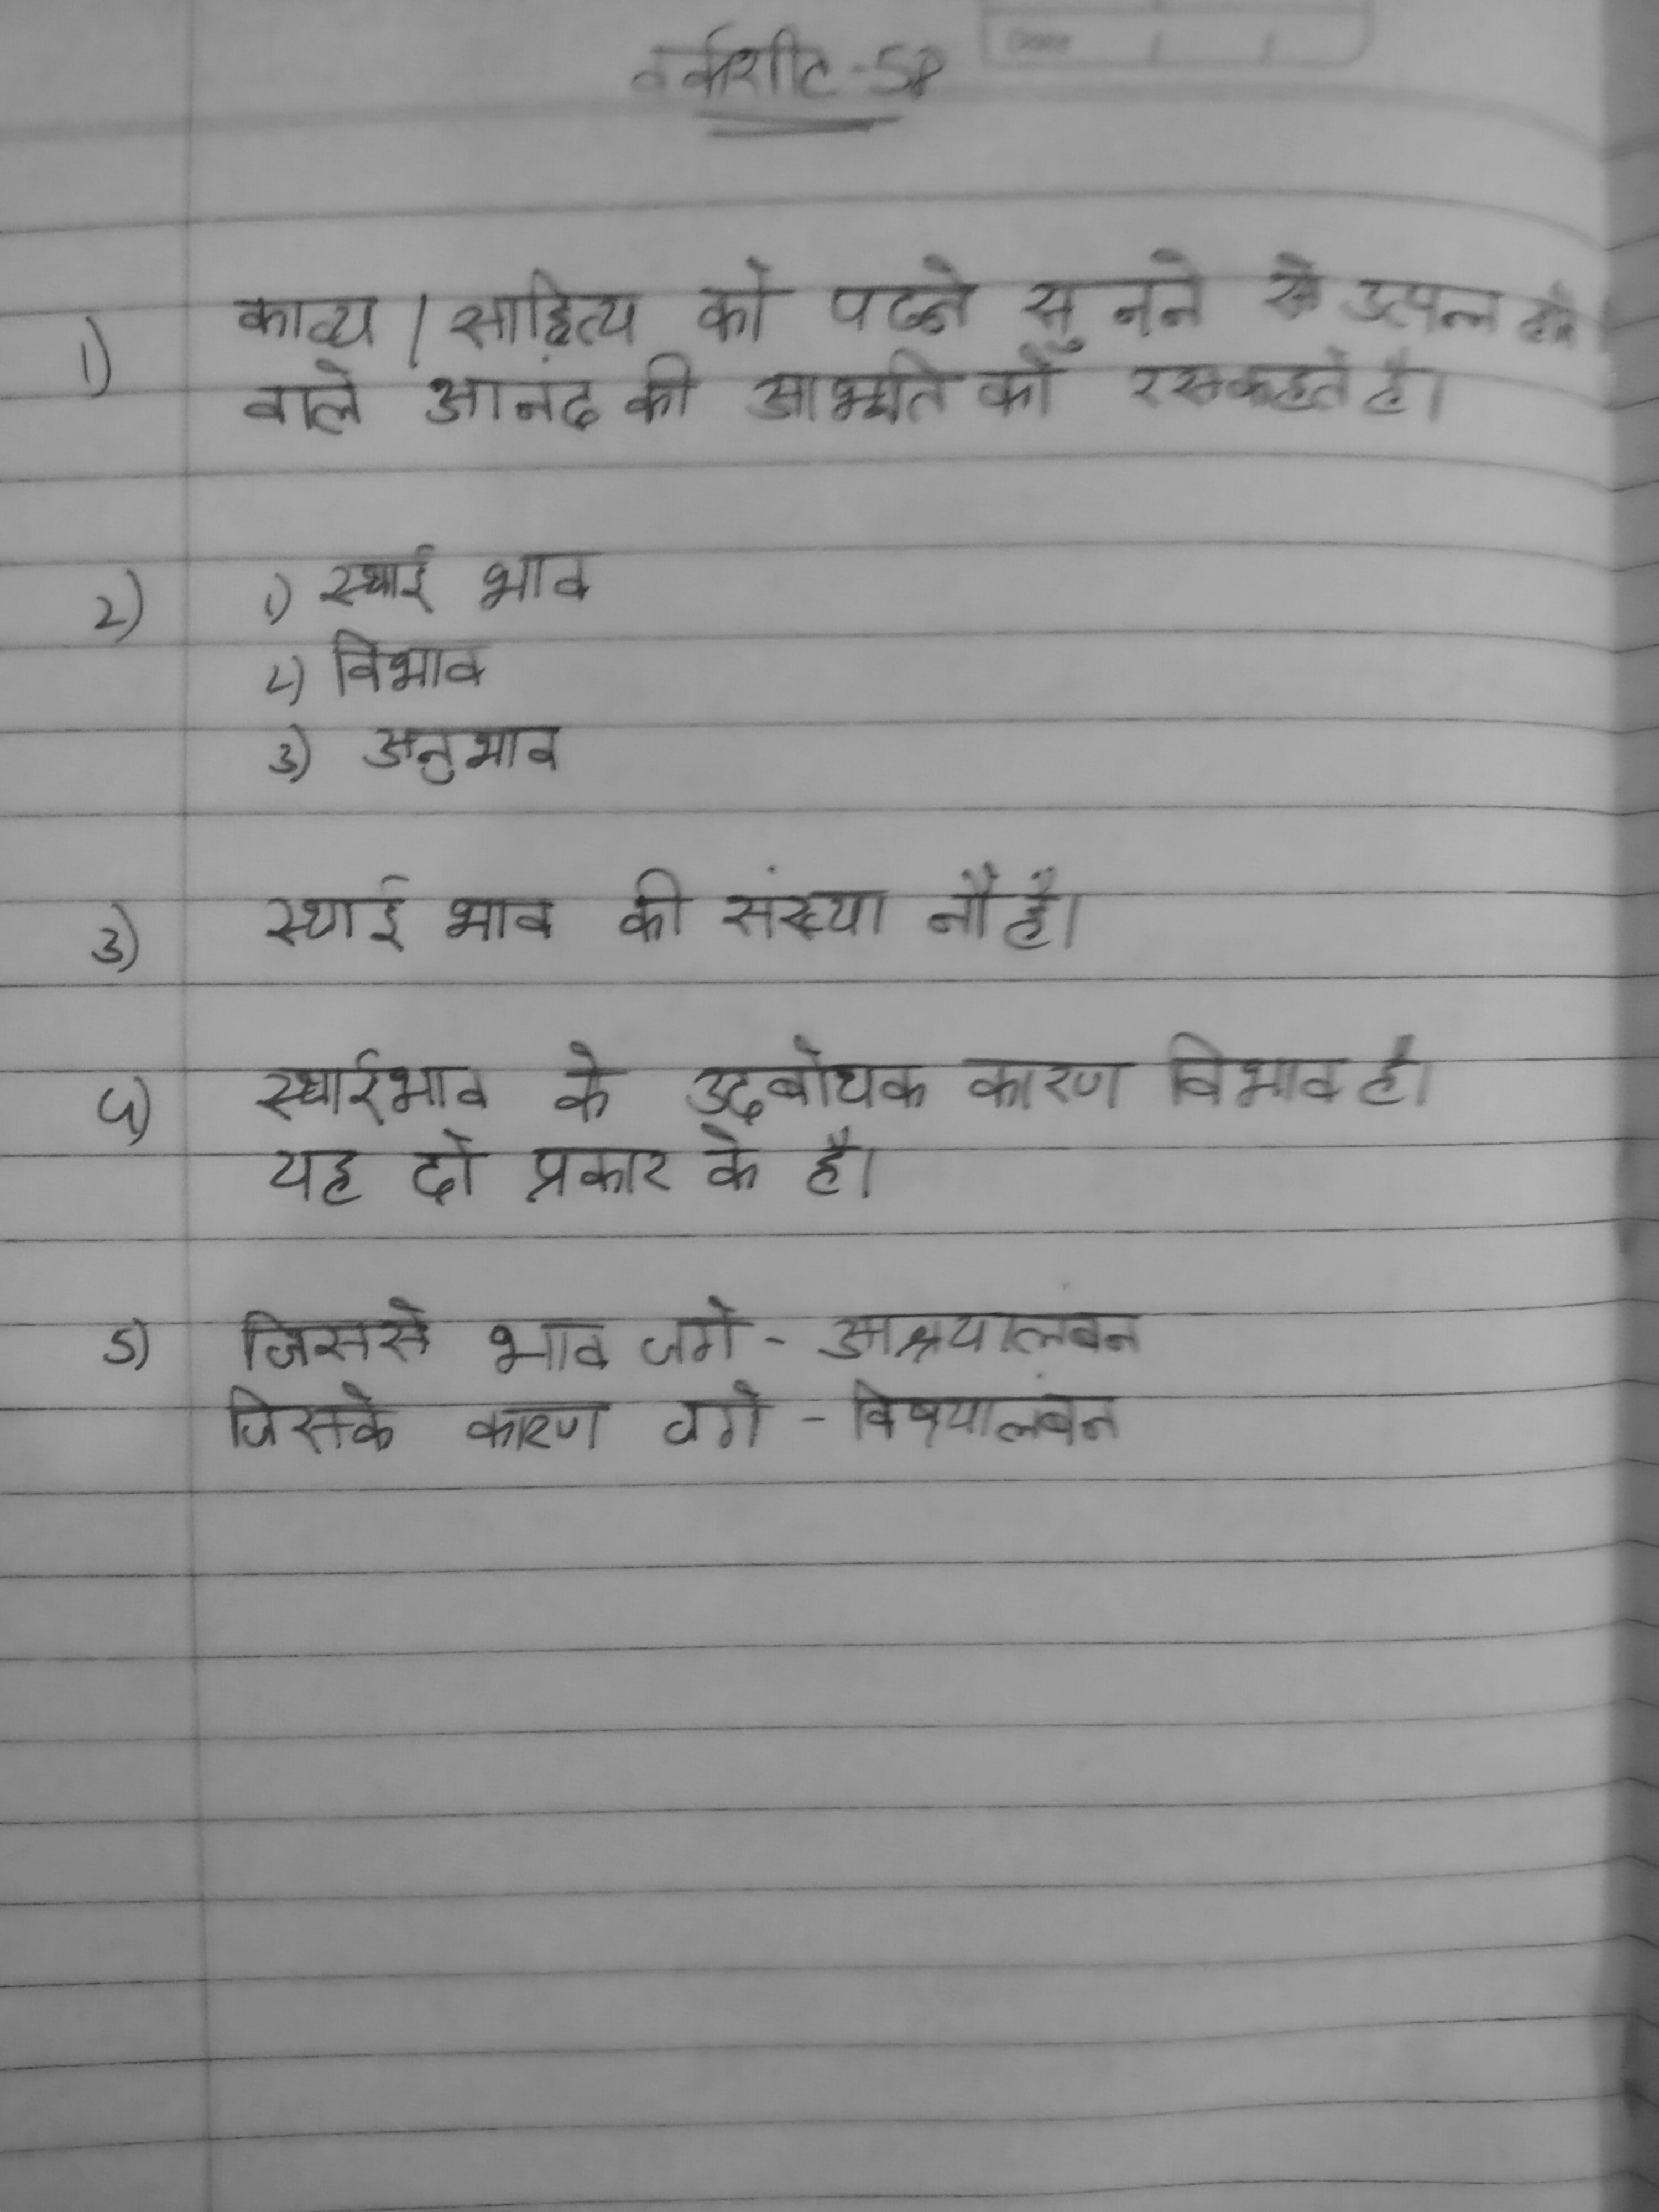 वर्कशीट-58
Date / /
1) काव्य / साहित्य को पढने सुनने से उत्पन्न होने
वाले आनंद की को रस कहते है।
2) 1) स्थाई भाव
2) विभाव
3) अनुभाव
3) स्थाई भाव की संख्या नौ है।
4) स्थाईभाव के उदबोधक कारण विभाव है।
यह दो प्रकार के है।
5) जिससे भाव जगे - आश्रयालंबन
जिसके कारण जगे - विषयालंबन